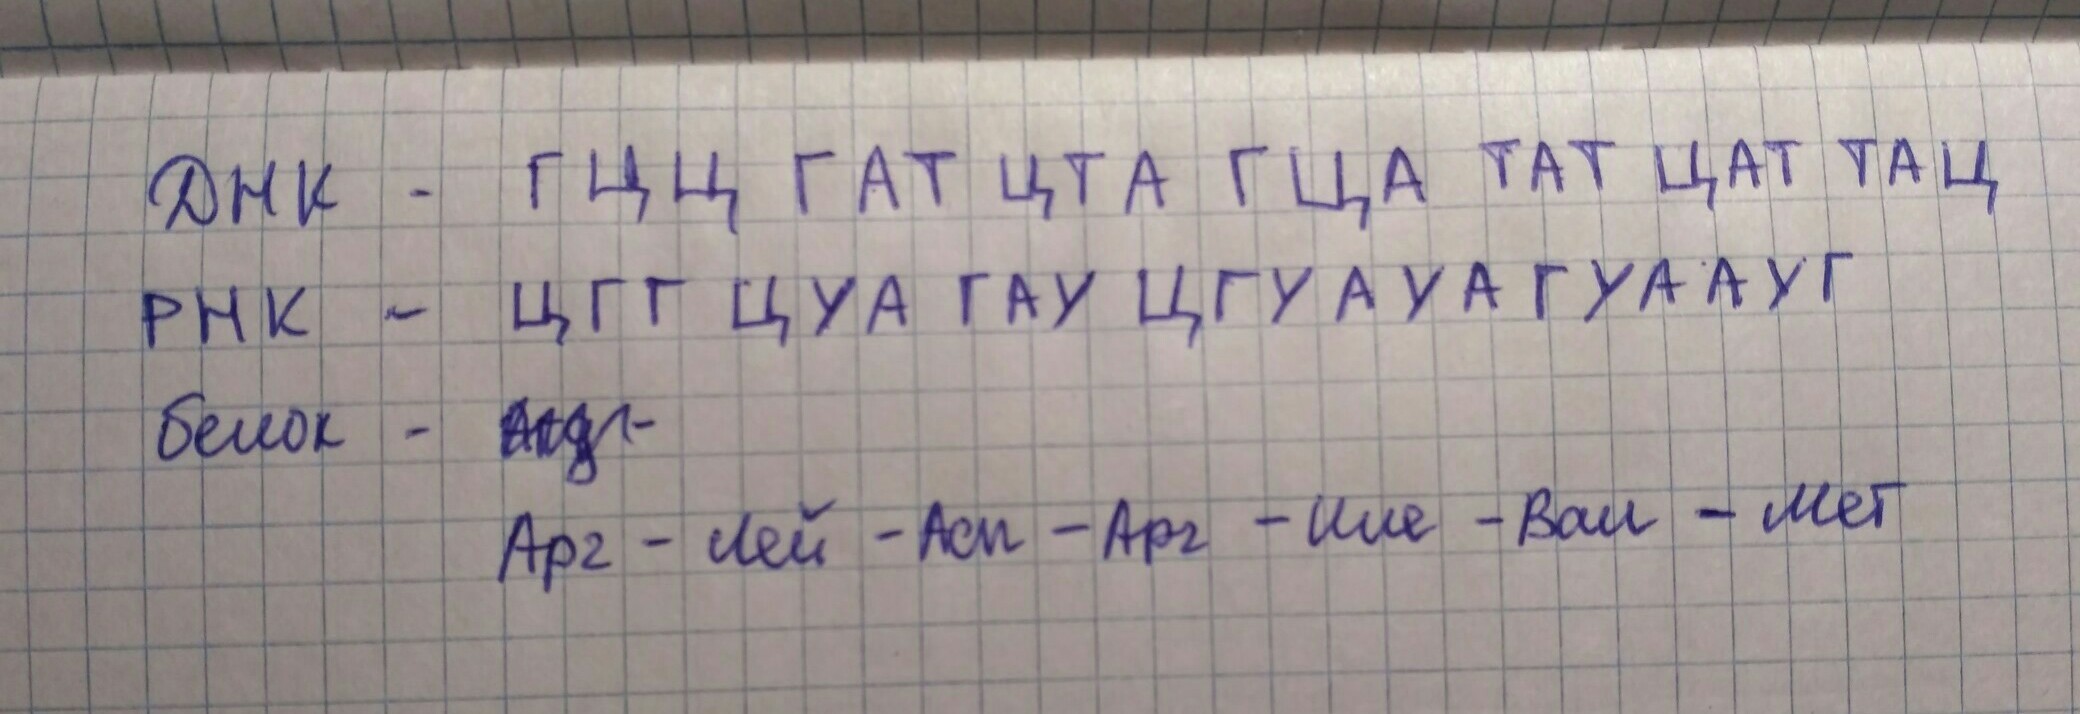 ДНК - ГЦЦ ГАТ ЦТА ГЦА ТАТ ЦАТ ТАЦ
РНК - ЦГГ ЦУА ГАУ ЦГУ АУА ГУА АУГ
белок -
Арг - Лей - Асп - Арг - Иле - Вал - Мет